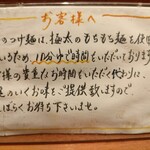 お客様へ
のつけ麺は、極太のもちもち麺も使用
るため、10分ゆで時間をいただいております
様の貴重なお時間をいただく代わりに、
足のいくお味をご提供致しますので
ばらくお待ち下さいませ。